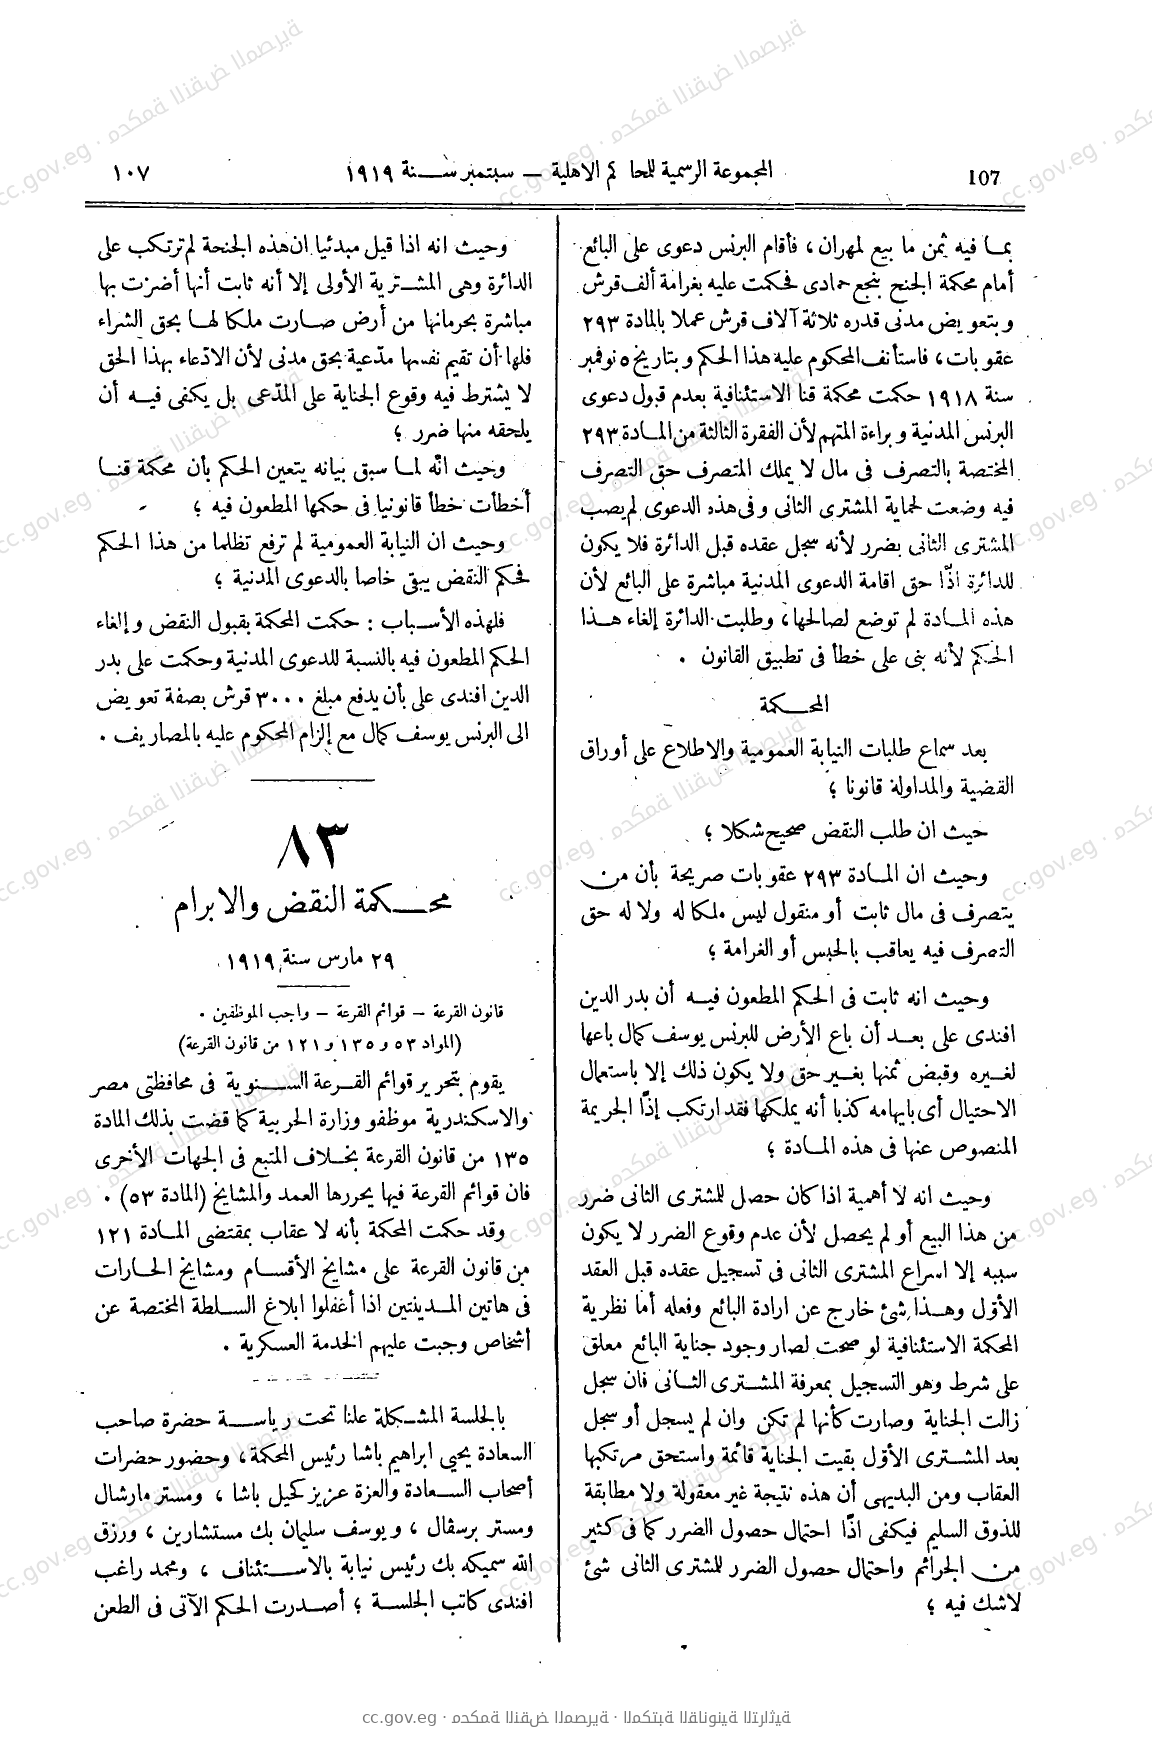 107
المجموعة الرسمية للمحاكم الاهلية – سبتمبر سنة ١٩١٩
١٠٧
بما فيه ثمن ما بيع لمهران، فأقام البرنس دعوى على البائع
أمام محكمة الجنح بنجع حمادى فحكمت عليه بغرامة ألف قرش
وبتعويض مدنى قدره ثلاثة آلاف قرش عملا بالمادة ٢٩٣
عقوبات، فاستأنف المحكوم عليه هذا الحكم وبتاريخ ٥ نوفمبر
سنة ١٩١٨ حكمت محكمة قنا الاستئنافية بعدم قبول دعوى
البرنس المدنية وبراءة المتهم لأن الفقرة الثالثة من المادة ٢٩٣
المختصة بالتصرف فى مال لا يملك المتصرف حق التصرف
فيه وضعت لحماية المشترى الثانى وفى هذه الدعوى لم يصب
المشترى الثانى بضرر لأنه سجل عقده قبل الدائرة فلا يكون
للدائرة اذًا حق اقامة الدعوى المدنية مباشرة على البائع لأن
هذه المادة لم توضع لصالحها، وطلبت الدائرة إلغاء هذا
الحكم لأنه بنى على خطأ فى تطبيق القانون .
المحكمة
بعد سماع طلبات النيابة العمومية والاطلاع على أوراق
القضية والمداولة قانونا ؛
حيث ان طلب النقض صحيح شكلا ؛
وحيث ان المادة ٢٩٣ عقوبات صريحة بأن من
يتصرف فى مال ثابت أو منقول ليس ملكا له ولا له حق
التصرف فيه يعاقب بالحبس أو الغرامة ؛
وحيث انه ثابت فى الحكم المطعون فيه أن بدر الدين
افندى على بعد أن باع الأرض للبرنس يوسف كمال باعها
لغيره وقبض ثمنها بغير حق ولا يكون ذلك إلا باستعمال
الاحتيال أى بايهامه كذبا أنه يملكها فقد ارتكب إذًا الجريمة
المنصوص عنها فى هذه المادة ؛
وحيث انه لا أهمية اذا كان حصل للمشترى الثانى ضرر
من هذا البيع أو لم يحصل لأن عدم وقوع الضرر لا يكون
سببه إلا اسراع المشترى الثانى فى تسجيل عقده قبل العقد
الأوّل وهذا شئ خارج عن ارادة البائع وفعله أما نظرية
المحكمة الاستئنافية لو صحت لصار وجود جناية البائع معلق
على شرط وهو التسجيل بمعرفة المشترى الثانى فان سجل
زالت الجناية وصارت كأنها لم تكن وان لم يسجل أو سجل
بعد المشترى الأوّل بقيت الجناية قائمة واستحق مرتكبها
العقاب ومن البديهى أن هذه نتيجة غير معقولة ولا مطابقة
للذوق السليم فيكفى اذًا احتمال حصول الضرر كما فى كثير
من الجرائم واحتمال حصول الضرر للمشترى الثانى شئ
لاشك فيه ؛
وحيث انه اذا قيل مبدئيا ان هذه الجنحة لم ترتكب على
الدائرة وهى المشترية الأولى إلا أنه ثابت أنها أضرت بها
مباشرة بحرمانها من أرض صارت ملكا لها بحق الشراء
فلها أن تقيم نفسها مدّعية بحق مدنى لأن الادّعاء بهذا الحق
لا يشترط فيه وقوع الجناية على المدّعى بل يكفى فيه أن
يلحقه منها ضرر ؛
وحيث انّه لما سبق بيانه يتعين الحكم بأن محكمة قنا
أخطأت خطأ قانونيا فى حكمها المطعون فيه ؛
وحيث ان النيابة العمومية لم ترفع تظلما من هذا الحكم
فحكم النقض يبقى خاصا بالدعوى المدنية ؛
فلهذه الأسباب : حكمت المحكمة بقبول النقض وإلغاء
الحكم المطعون فيه بالنسبة للدعوى المدنية وحكمت على بدر
الدين افندى على بأن يدفع مبلغ ٣٠٠٠ قرش بصفة تعويض
الى البرنس يوسف كمال مع إلزام المحكوم عليه بالمصاريف .
٨٣
محكمة النقض والابرام
٢٩ مارس سنة ١٩١٩
قانون القرعة – قوائم القرعة – واجب الموظفين .
(المواد ٥٣ و ١٣٥ و ١٢١ من قانون القرعة)
يقوم بتحرير قوائم القرعة السنوية فى محافظتى مصر
والاسكندرية موظفو وزارة الحربية كما قضت بذلك المادة
١٣٥ من قانون القرعة بخلاف المتبع فى الجهات الأخرى
فان قوائم القرعة فيها يحررها العمد والمشايخ (المادة ٥٣) .
وقد حكمت المحكمة بأنه لا عقاب بمقتضى المادة ١٢١
من قانون القرعة على مشايخ الأقسام ومشايخ الحارات
فى هاتين المدينتين اذا أغفلوا ابلاغ السلطة المختصة عن
أشخاص وجبت عليهم الخدمة العسكرية .
بالجلسة المشكلة علنا تحت رياسة حضرة صاحب
السعادة يحيى ابراهيم باشا رئيس المحكمة، وحضور حضرات
أصحاب السعادة والعزة عزيز كحيل باشا ، ومستر مارشال
ومستر برسڤال ، ويوسف سليمان بك مستشارين ، ورزق
الله سميكه بك رئيس نيابة بالاستئناف ، ومحمد راغب
افندى كاتب الجلسة ؛ أصدرت الحكم الآتى فى الطعن
cc.gov.eg · محكمة النقض المصرية · المكتبة القانونية التراثية